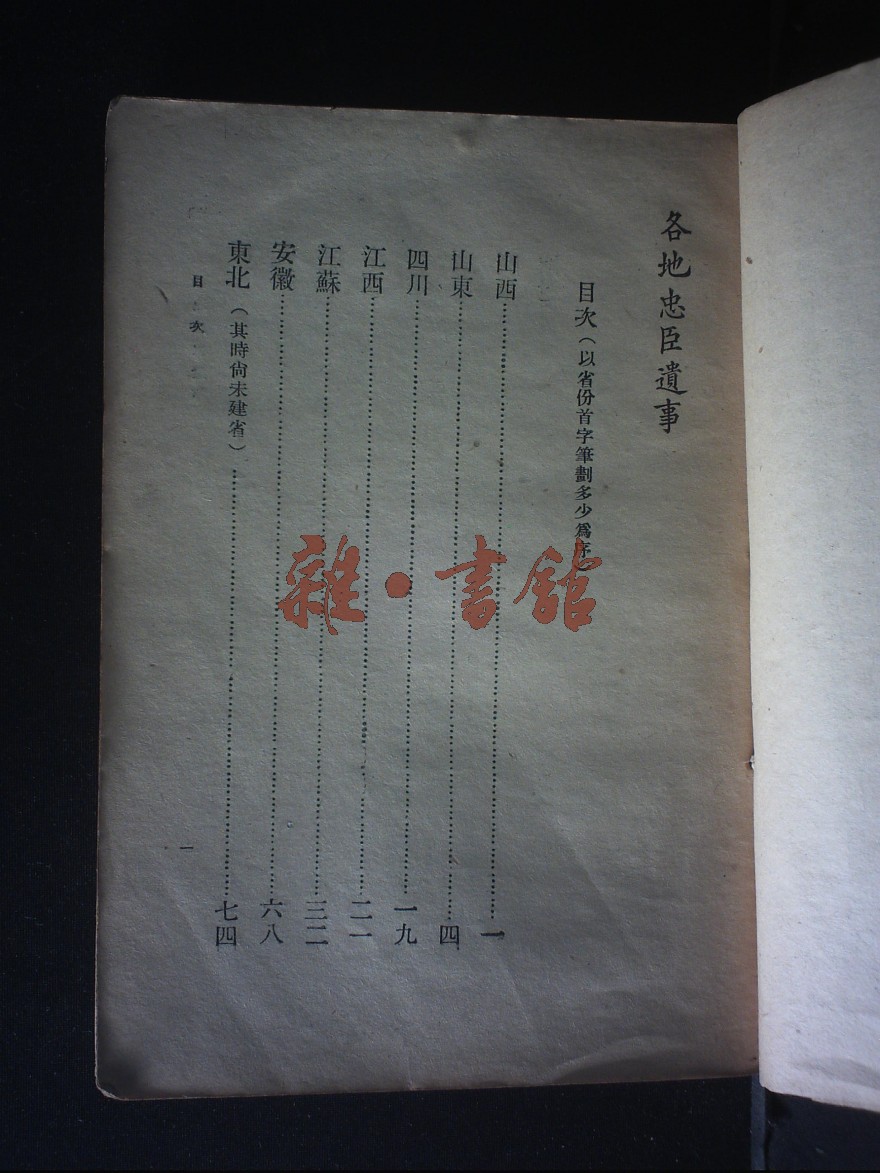 各地忠臣遺事
目次（以省份首字筆劃多少爲序）
山西……一
山東……四
四川……一九
江西……二一
江蘇……三二
安徽……六八
東北（其時尙未建省）……七四
目次
一
雜·書館